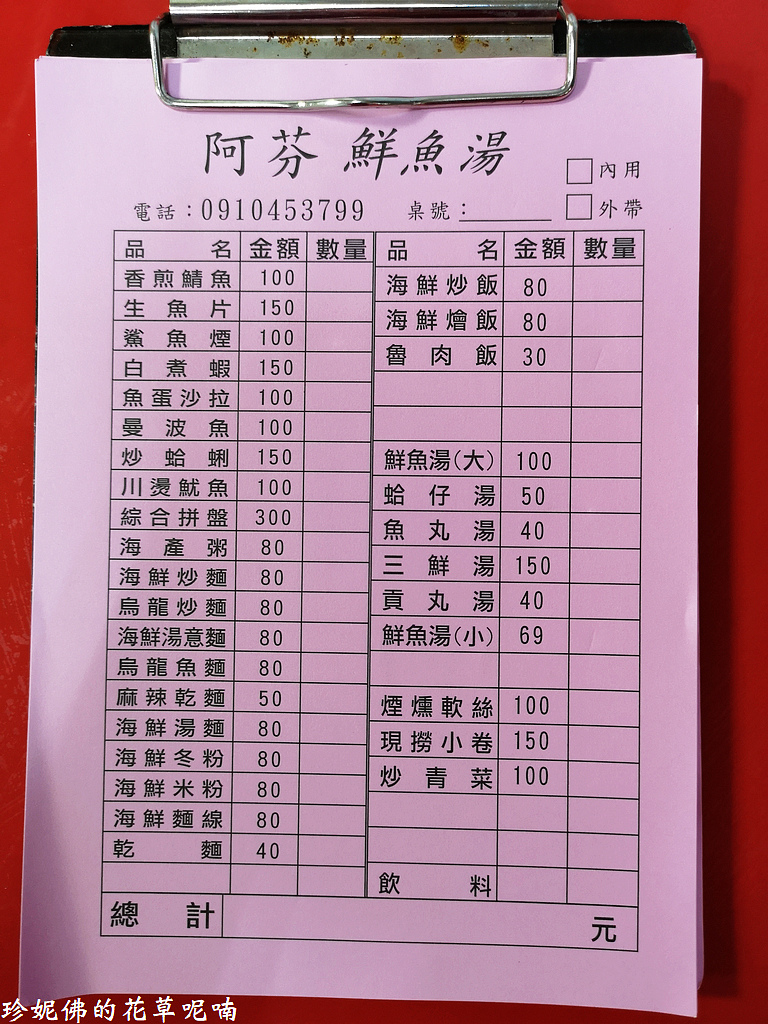 阿芬 鮮魚湯
內用
電話：0910453799 桌號：
外帶
品名 金額 數量
香煎鯖魚 100
生魚片 150
鯊魚煙 100
白煮蝦 150
魚蛋沙拉 100
曼波魚 100
炒蛤蜊 150
川燙魷魚 100
綜合拼盤 300
海產粥 80
海鮮炒麵 80
烏龍炒麵 80
海鮮湯意麵 80
烏龍魚麵 80
麻辣乾麵 50
海鮮湯麵 80
海鮮冬粉 80
海鮮米粉 80
海鮮麵線 80
乾麵 40
品名 金額 數量
海鮮炒飯 80
海鮮燴飯 80
魯肉飯 30
鮮魚湯(大) 100
蛤仔湯 50
魚丸湯 40
三鮮湯 150
貢丸湯 40
鮮魚湯(小) 69
煙燻軟絲 100
現撈小卷 150
炒青菜 100
飲料
總計 元
珍妮佛的花草呢喃